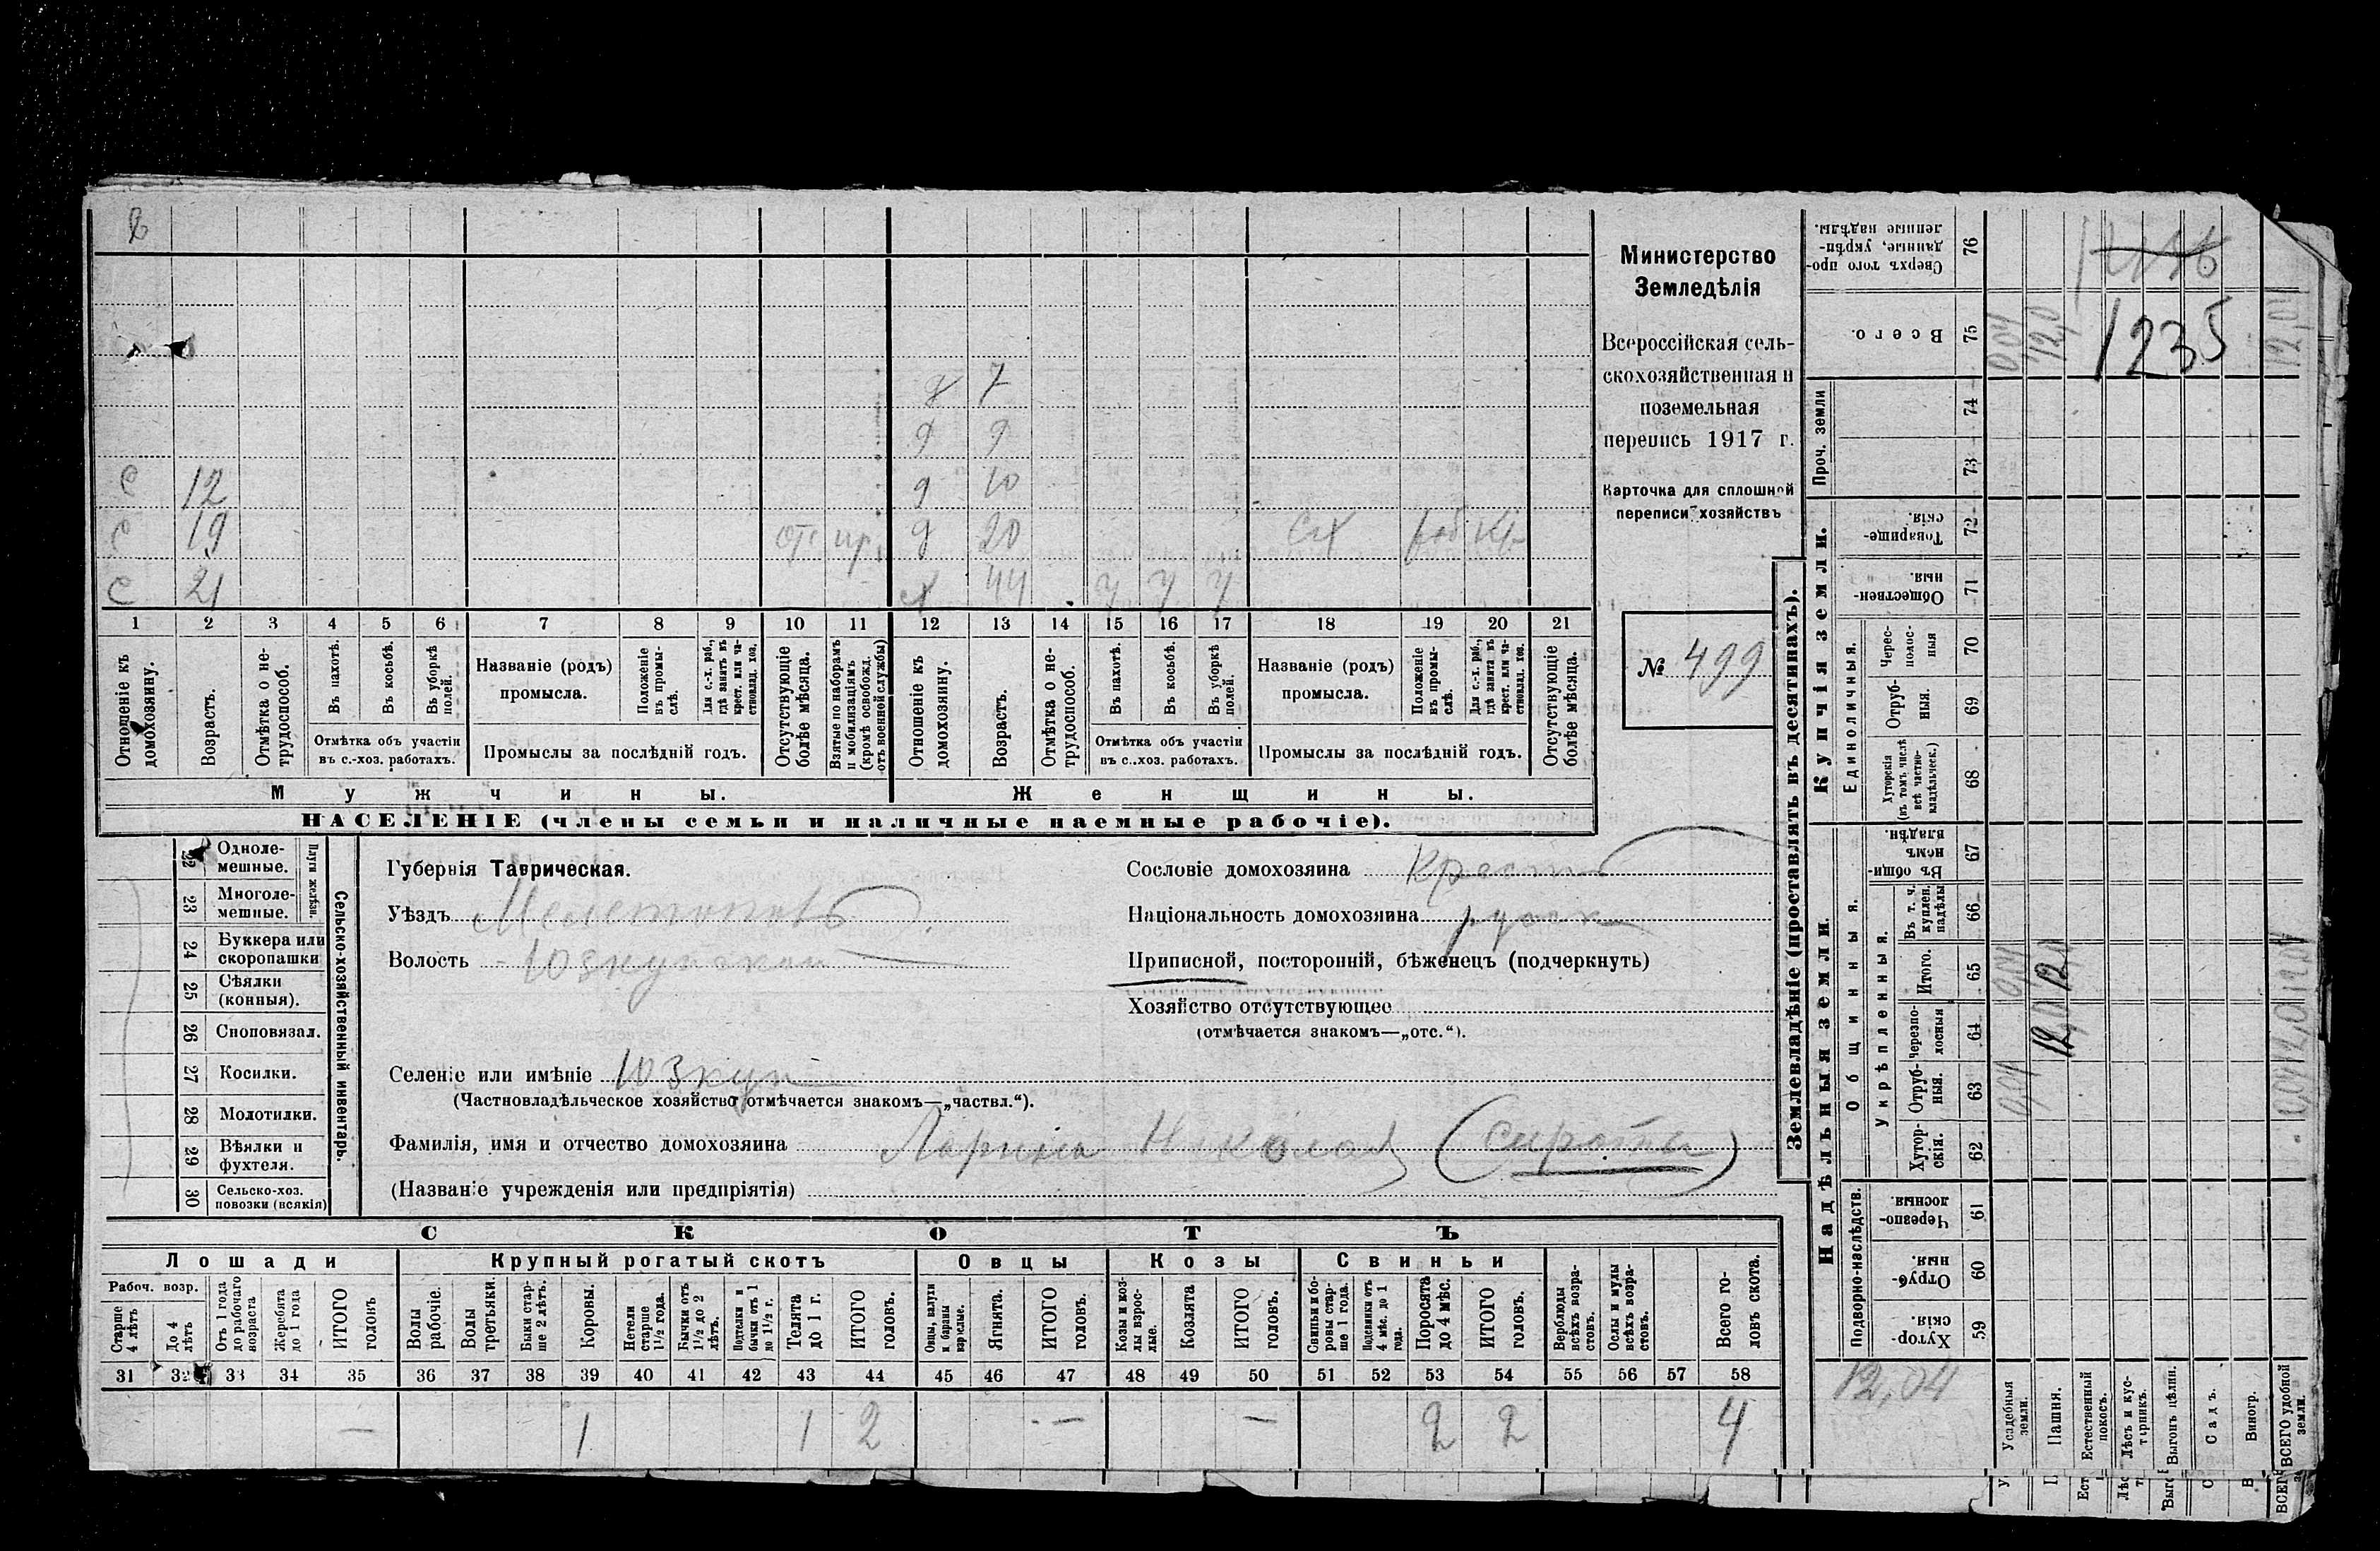 Министерство
Земледѣлія
Всероссійская сель-
скохозяйственная и
поземельная
перепись 1917 г.
Карточка для сплошной
переписи хозяйствъ
№ 499
д 7
д 9
с 12 д 10
с 19 отс пр. д 20 СХ раб Кр
с 21 44 у у у
1 2 3 4 5 6 7 8 9 10 11 12 13 14 15 16 17 18 19 20 21
Отношеніе къ домохозяину.
Возрастъ.
Отмѣтка о не-трудоспособ.
Въ пахотѣ.
Въ косьбѣ.
Въ уборкѣ полей.
Отмѣтка объ участіи
въ с.-хоз. работахъ.
Названіе (родъ)
промысла.
Положеніе въ промы-слѣ.
Для с.-х. раб., гдѣ занятъ въ крест. или ча-стновлад. хоз.
Промыслы за послѣдній годъ.
Отсутствующіе болѣе мѣсяца.
Взятые по наборамъ и мобилизаціямъ (кромѣ освобожд. отъ военной службы)
Отношеніе къ домохозяину.
Возрастъ.
Отмѣтка о не-трудоспособ.
Въ пахотѣ.
Въ косьбѣ.
Въ уборкѣ полей.
Отмѣтка объ участіи
въ с..хоз. работахъ.
Названіе (родъ)
промысла.
Положеніе въ промы-слѣ.
Для с.-х. раб., гдѣ занята въ крест. или ча-стновлад. хоз.
Промыслы за послѣдній годъ.
Отсутствующіе болѣе мѣсяца.
Мужчины. Женщины.
НАСЕЛЕНІЕ (члены семьи и наличные наемные рабочіе).
Сельско-хозяйственный инвентарь.
Плуги желѣзн.
22 Одноле-мешные.
23 Многоле-мешные.
24 Буккера или скоропашки
25 Сѣялки (конныя).
26 Сноповязал.
27 Косилки.
28 Молотилки.
29 Вѣялки и фухтеля.
30 Сельско-хоз. повозки (всякія)
Губернія Таврическая.
Уѣздъ Мелитополь
Волость Юзкуйская
Селеніе или имѣніе Юзкуи
(Частновладѣльческое хозяйство отмѣчается знакомъ—„частвл.“).
Фамилія, имя и отчество домохозяина Ларина Никола (Сироты)
(Названіе учрежденія или предпріятія)
Сословіе домохозяина Крестьян
Національность домохозяина русск
Приписной, посторонній, бѣженецъ (подчеркнуть)
Хозяйство отсутствующее
(отмѣчается знакомъ—„отс.“).
СКОТЪ
Лошади Крупный рогатый скотъ Овцы Козы Свиньи
Рабоч. возр.
Старше 4 лѣтъ
До 4 лѣтъ
Отъ 1 года до рабочаго возраста
Жеребята до 1 года
ИТОГО головъ
Волы рабочіе.
Волы третьяки.
Быки стар-ше 2 лѣтъ.
Коровы.
Нетели старше 1½ года.
Бычки отъ 1½ до 2 лѣтъ.
Подтелки и бычки отъ 1 до 1½ г.
Телята до 1 г.
ИТОГО головъ.
Овцы, валухи и бараны взрослые.
Ягнята.
ИТОГО головъ.
Козы и коз-лы взрос-лые.
Козлята
ИТОГО головъ.
Свиньи и бо-ровы стар-ше 1 года.
Подсвинки отъ 4 мѣс. до 1 года.
Поросята до 4 мѣс.
ИТОГО головъ.
Верблюды всѣхъ возра-стовъ.
Ослы и мулы всѣхъ возра-стовъ.
Всего го-ловъ скота.
31 32 33 34 35 36 37 38 39 40 41 42 43 44 45 46 47 48 49 50 51 52 53 54 55 56 57 58
— 1 1 2 — — 2 2 4
Землевладѣніе (проставлять въ десятинахъ).
Надѣльныя земли. Купчія земли. Проч. земли
Подворно-наслѣдств.
Общинныя.
Укрѣпленныя.
Единоличныя.
Хутор-скія. 59
Отруб-ныя. 60
Черезпо-лосныя 61
Хутор-скія. 62
Отруб-ныя. 63
Черезпо-лосныя 64
Итого. 65
Въ т. ч. куплен. надѣлы 66
Въ общин-номъ владѣн. 67
Хуторскія (въ томъ числѣ всѣ частно-владѣльческ.) 68
Отруб-ныя. 69
Черес-полос-ныя 70
Обществен-ныя. 71
Товарище-скія. 72
73
74
Всего. 75
Сверхъ того про-данные, укрѣп-ленные надѣлы. 76
12,04
Усадебныя земли. 0,04 0,04 0,04
Пашня. 12,0 12,0 12,0
Естественный покосъ.
Лѣсъ и кус-тарникъ.
Выгонъ цѣлин.
Садъ.
Виногр.
ВСЕГО удобной земли.
1235